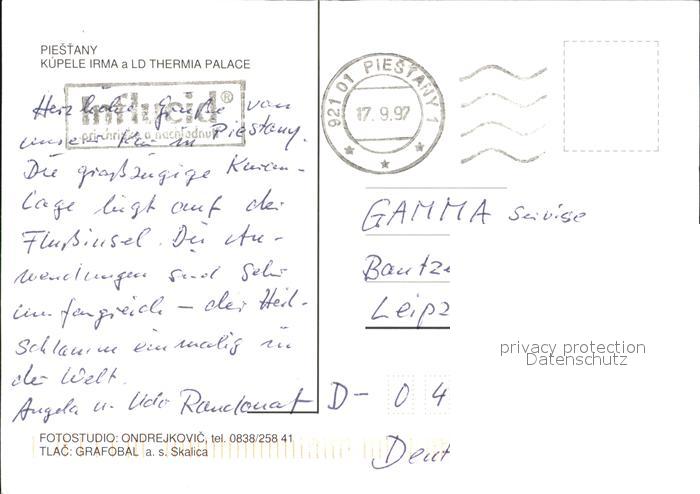 PIEŠŤANY
KÚPELE IRMA a LD THERMIA PALACE
Influcid®
pri chrípke a nachladnutí
Herzliche Grüße von
unserer Kur in Piešťany.
Die großzügige Kuran-
lage liegt auf der
Flußinsel. Die An-
wendungen sind sehr
umfangreich – der Heil-
schlamm einmalig in
der Welt.
Angela u. Udo Randonat
FOTOSTUDIO: ONDREJKOVIČ, tel. 0838/258 41
TLAČ: GRAFOBAL a. s. Skalica
921 01 PIEŠŤANY 1
17.9.97
GAMMA Servise
Bautze
Leipz
D- 04
Deut
privacy protection
Datenschutz